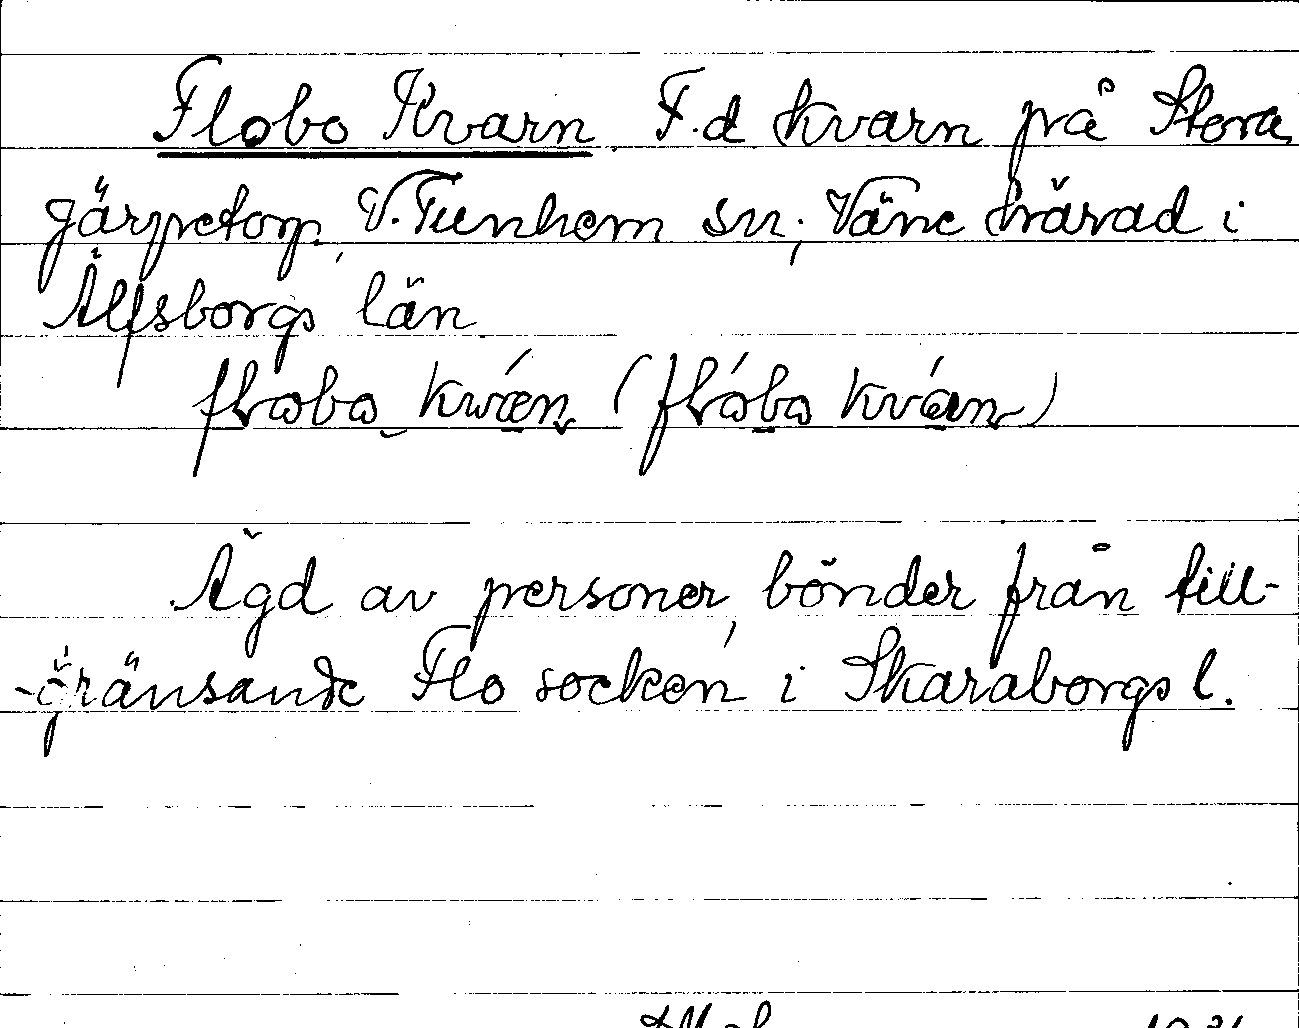 Flobo Kvarn. F.d kvarn på Stora
gärpetorp, V. Tunhem sn; Väne härad i
Älfsborgs län
flobo kwén (flóbo kván)
Ägd av personer, bönder från till-
-gränsande Flo socken i Skaraborgs l.